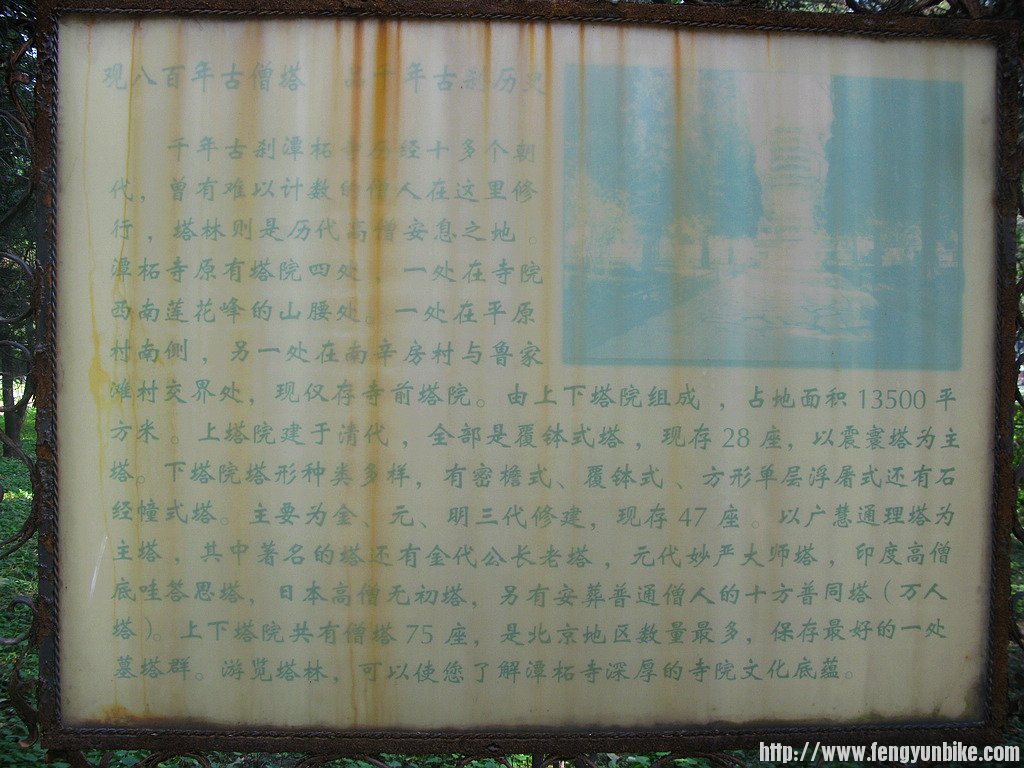 观八百年古僧塔 品千年古刹历史
千年古刹潭柘寺历经十多个朝
代，曾有难以计数的僧人在这里修
行，塔林则是历代高僧安息之地。
潭柘寺原有塔院四处，一处在寺院
西南莲花峰的山腰处。一处在平原
村南侧，另一处在南辛房村与鲁家
滩村交界处，现仅存寺前塔院。由上下塔院组成，占地面积13500平
方米。上塔院建于清代，全部是覆钵式塔，现存28座，以震寰塔为主
塔。下塔院塔形种类多样，有密檐式、覆钵式、方形单层浮屠式还有石
经幢式塔。主要为金、元、明三代修建，现存47座。以广慧通理塔为
主塔，其中著名的塔还有金代公长老塔，元代妙严大师塔，印度高僧
底哇答思塔，日本高僧无初塔，另有安葬普通僧人的十方普同塔（万人
塔）。上下塔院共有僧塔75座，是北京地区数量最多，保存最好的一处
墓塔群。游览塔林，可以使您了解潭柘寺深厚的寺院文化底蕴。
http://www.fengyunbike.com